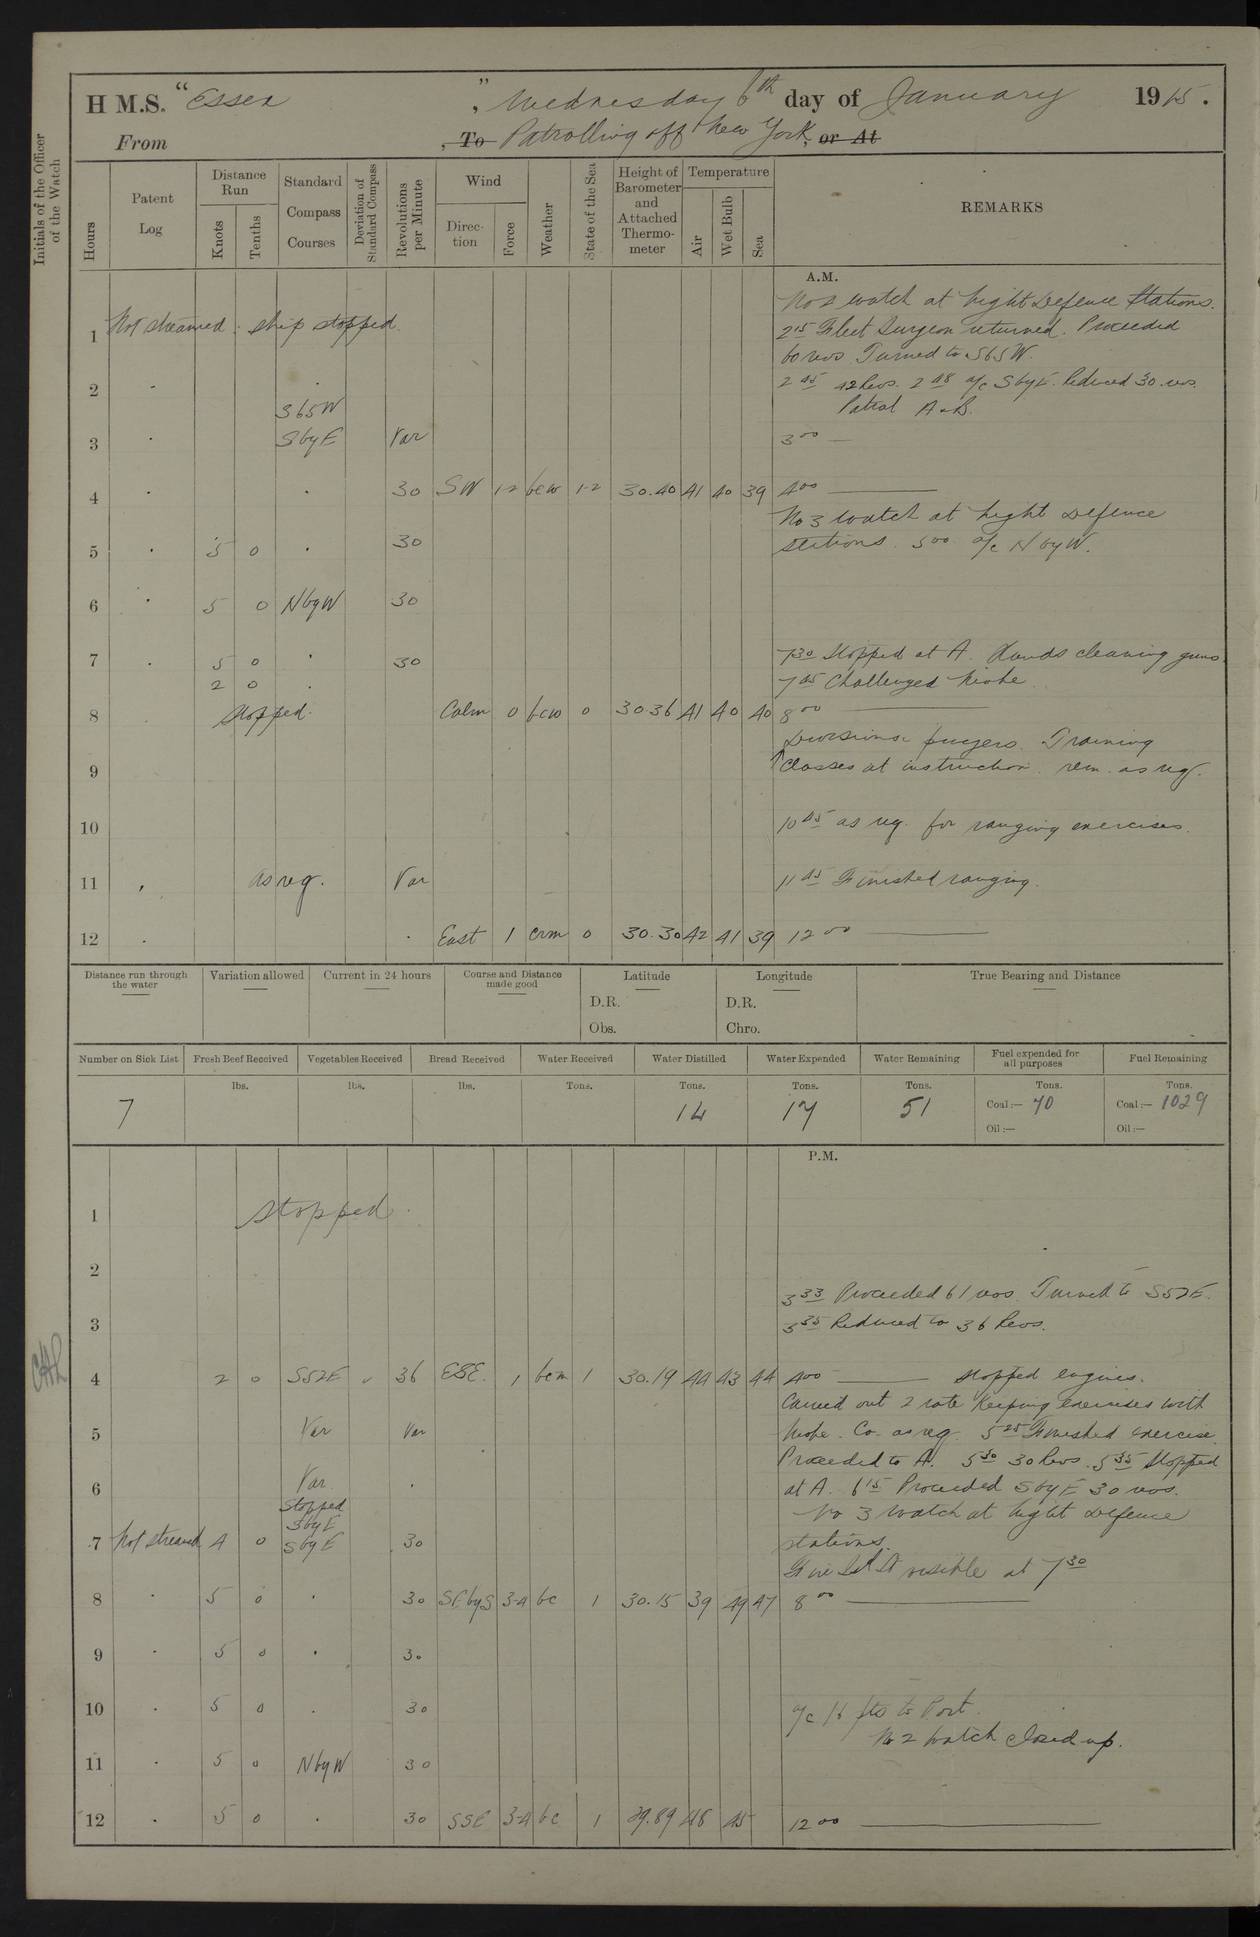 H M.S. "Essex", Wednesday 6th day of January 1915.
From , To Patrolling off New York, or At
Initials of the Officer of the Watch
Hours
Patent Log
Distance Run
Knots
Tenths
Standard Compass Courses
Deviation of Standard Compass
Revolutions per Minute
Wind
Direction
Force
Weather
State of the Sea
Height of Barometer and Attached Thermometer
Temperature
Air
Wet Bulb
Sea
REMARKS
A.M.
No 2 watch at Night Defence Stations.
1 Not streamed. Ship stopped. 2 15 Fleet Surgeon returned. Proceeded
60 revs Turned to S65W.
2 2 45 42 Revs. 2 48 a/c SbyE. Reduced 30 revs.
S65W Patrol A & B.
3 SbyE Var 3 00
4 30 SW 1-2 bcw 1-2 30.40 41 40 39 4 00
No 3 watch at Night Defence
5 5 0 30 stations. 5 00 a/c NbyW.
6 5 0 NbyW 30
7 5 0 30 7 30 Stopped at A. Hands cleaning guns.
2 0 7 45 Challenged Niobe
8 Stopped. Calm 0 bcw 0 30.36 41 40 40 8 00
Divisions prayers. Training
9 Classes at instruction. rem. as req.
10 10 45 as req. for ranging exercises.
11 as req. Var 11 45 Finished ranging.
12 East 1 crm 0 30.30 42 41 39 12 00
Distance run through the water
Variation allowed
Current in 24 hours
Course and Distance made good
Latitude
D.R.
Obs.
Longitude
D.R.
Chro.
True Bearing and Distance
Number on Sick List
Fresh Beef Received
Vegetables Received
Bread Received
Water Received
Water Distilled
Water Expended
Water Remaining
Fuel expended for all purposes
Fuel Remaining
lbs. lbs. lbs. Tons. Tons. Tons. Tons. Tons. Tons.
7 14 17 51 Coal:— 70 Coal:— 1029
Oil:— Oil:—
P.M.
1 Stopped.
2
3 33 Proceeded 61 revs. Turned to S52E.
3 3 35 Reduced to 36 Revs.
4 2 0 S52E 36 ESE. 1 bcm 1 30.19 44 43 44 4 00 Stopped engines.
Carried out 2 rate Keeping exercises with
5 Var Var Niobe. Co. as req. 5 25 Finished exercise.
Proceeded to A. 5 30 30 Revs. 5 35 Stopped
6 Var at A. 6 15 Proceeded SbyE 30 revs.
Stopped
SbyE No 3 Watch at Night Defence
7 Not streamed 4 0 SbyE 30 stations.
Fire Isld Lt visible at 7 30
8 5 0 30 SEbyS 3-4 bc 1 30.15 39 49 47 8 00
9 5 0 30
10 5 0 30 a/c 16 pts to Port.
No 2 Watch closed up.
11 5 0 NbyW 30
12 5 0 30 SSE 3-4 bc 1 29.89 48 45 12 00